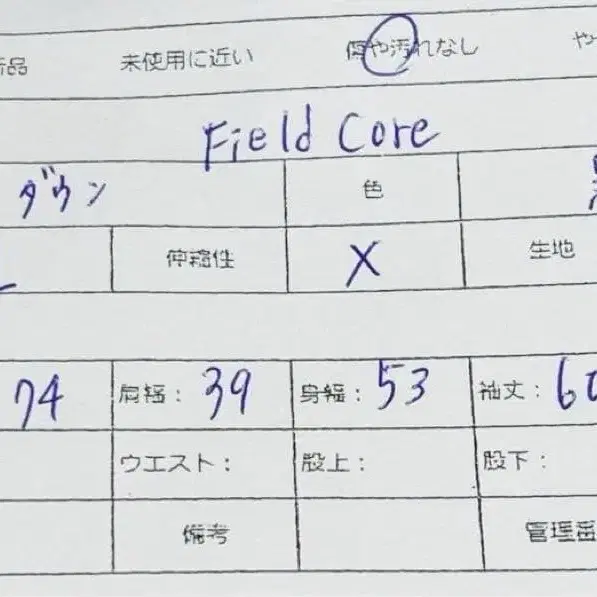 品 未使用に近い 傷や汚れなし や
Field Core
ダウン 色
伸縮性 X 生地
74 肩幅: 39 身幅: 53 袖丈: 60
ウエスト: 股上: 股下:
備考 管理番